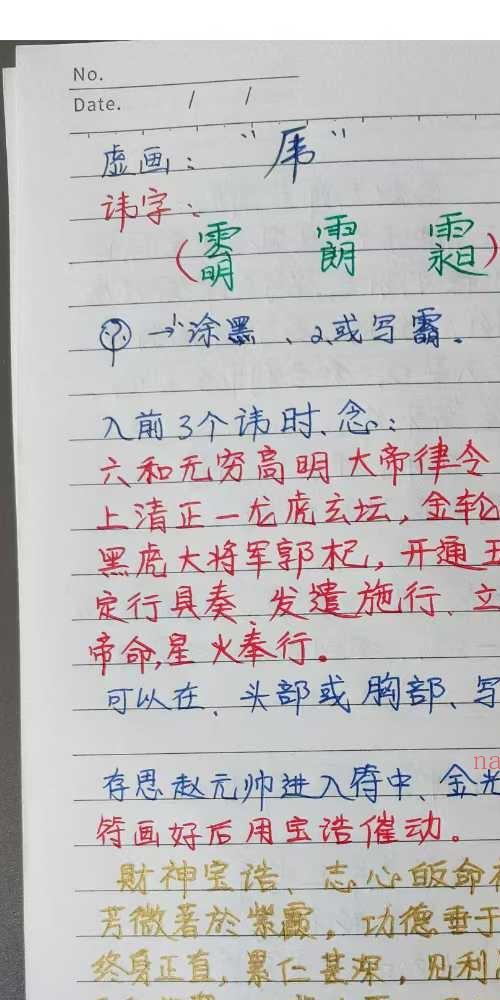 No.
Date. / /
虚画："厈"
讳字：
(䨹 𩃭 )
→1涂黑、2或写霸。
入前3个讳时、念：
六和无穷高明大帝律令
上清正一龙虎玄坛，金轮
黑虎大将军郭杞，开通五
定行具奏、发遣施行、立
帝命,星火奉行。
可以在、头部或胸部、写
na
存思赵元帅进入符中、金光
符画好后用宝诰催动。
財神宝诰、志心皈命礼
芳微著於紫霄，功德垂于
终身正直，累仁甚深，见利